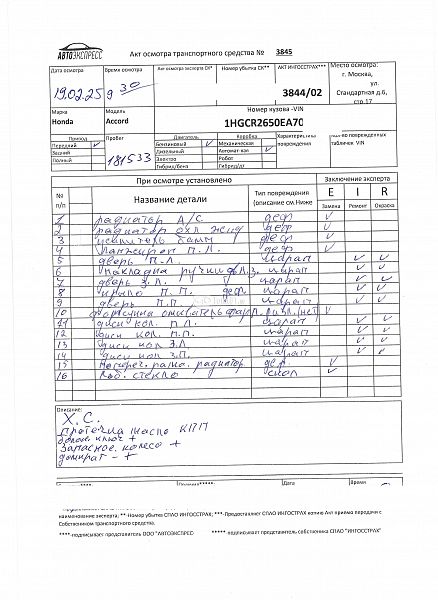 АВТОЭКСПРЕСС
Акт осмотра транспортного средства № 3845
Дата осмотра Время осмотра Акт осмотра эксперта СК* Номер убытка СК** АКТ ИНГОССТРАХ*** Место осмотра:
г. Москва,
ул.
Стандартная д.6,
стр 17
19.02.25 9 30 3844/02
Марка Модель Номер кузова -VIN
Honda Accord 1HGCR2650EA70
Привод Пробег Двигатель Коробка Характеристика повреждения
Передний ✓ 181533 Бензиновый ✓ Механическая
Задний Дизельный Автомат-кая ✓ табличек VIN
Полный Электро Робот
Гибрид/бенз Гибрид/д
При осмотре установлено Заключение эксперта
№ п/п Название детали Тип повреждения (описание см.Ниже E I R
Замена Ремонт Окраска
1 радиатор А/С деф ✓
2 радиатор охл деф ✓
3 усилитель деф ✓
4 П.Л. деф ✓
5 дверь П.Л. царап ✓ ✓
6 накладка ручки царап ✓ ✓
7 дверь З.Л. царап ✓ ✓
8 крыло П.П. деф. царап ✓ ✓
9 дверь П.П. царап ✓ ✓
10 форсунка омывателя фар нет ✓
11 диск кол. П.Л. царап ✓ ✓
12 диск кол. П.П. царап ✓ ✓
13 диск кол З.Л. царап ✓ ✓
14 диск кол З.П. царап ✓ ✓
15 радиатор. деф. ✓
16 Лоб. стекло скол ✓
Описание:
Х.С.
Протечка масло КПП
балон. ключ +
Запасное колесо +
домкрат - +
Дата Время
наименование эксперта; **-Номер убытка СПАО ИНГОССТРАХ; ***-Предоставляет СПАО ИНГОССТРАХ копию Акт приема передачи с
Собственником транспортного средства.
****-подписывает представитель ООО "АВТОЭКСПРЕСС *****-подписывает представитель собственника СПАО "ИНГОССТРАХ"